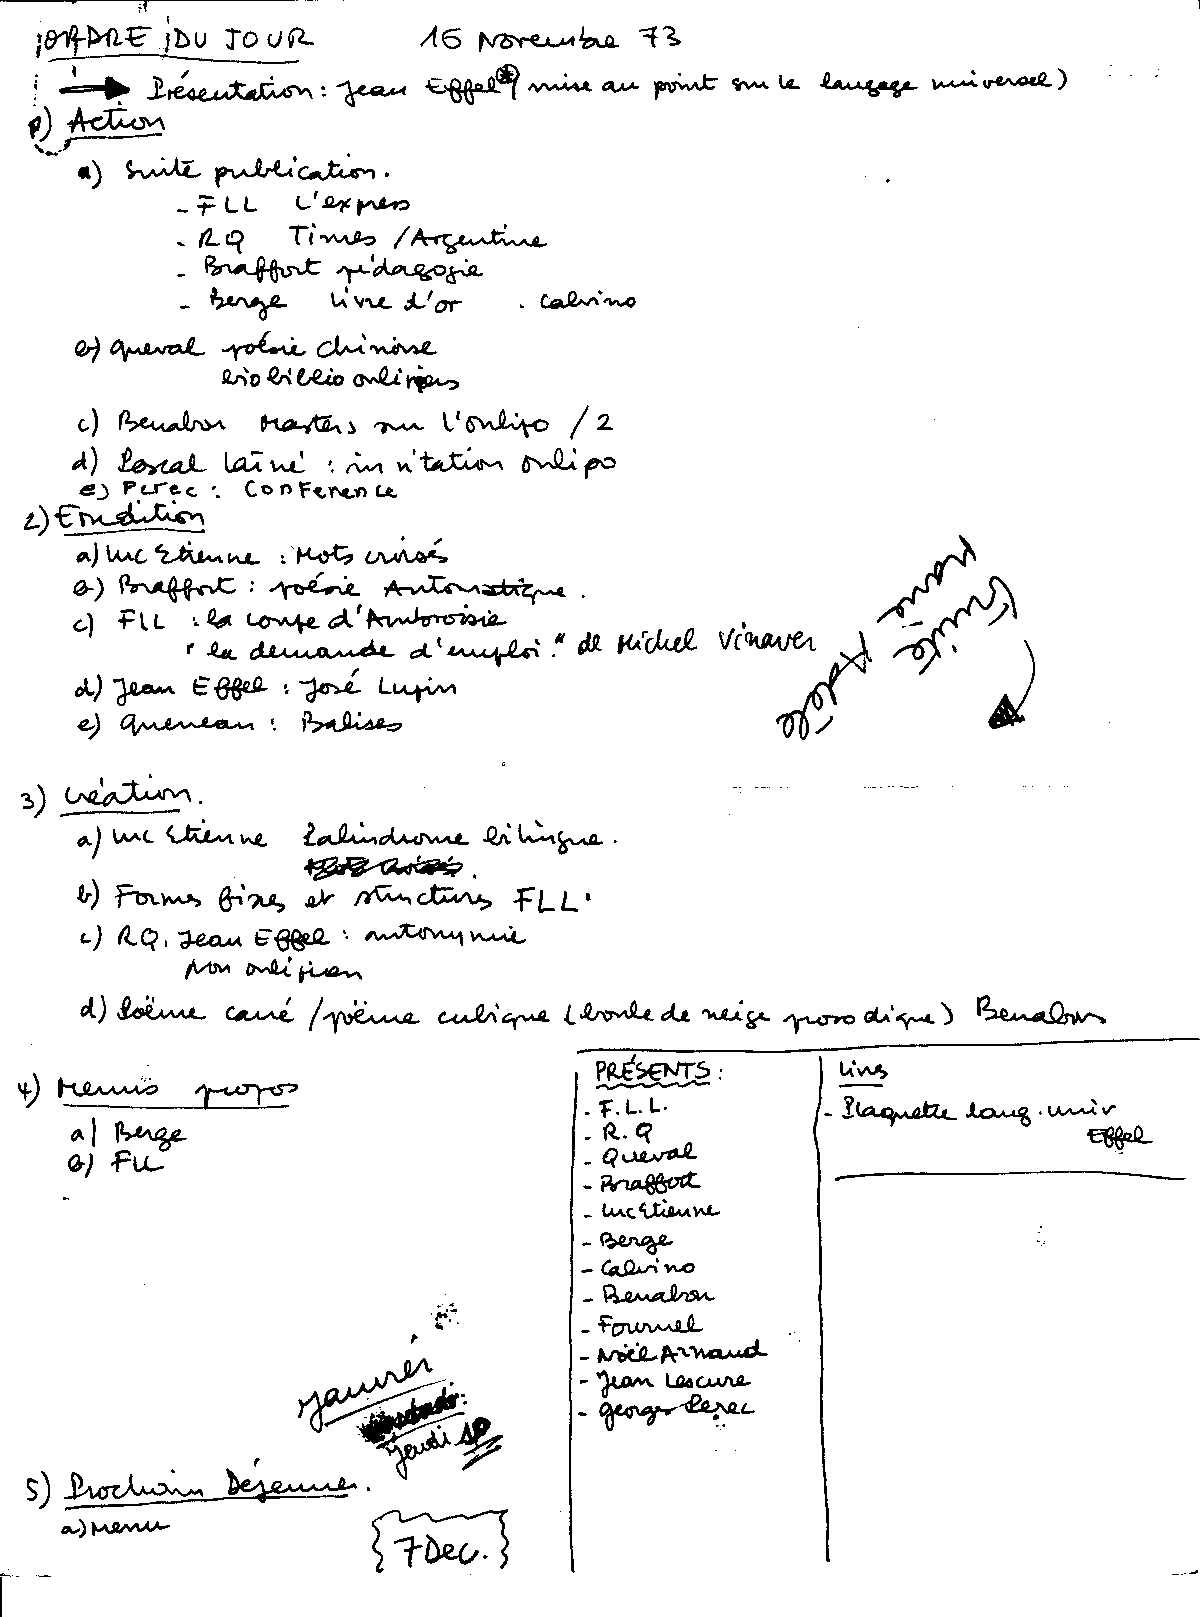 ORDRE DU JOUR 16 Novembre 73
Présentation : Jean Effel (mise au point sur le langage universel)
1) Action
a) Suite publication.
- FLL L'express
- RQ Times / Argentine
- Braffort pédagogie
- Berge livre d'or . Calvino
b) Queval poésie chinoise
biobiblio oulipiens
c) Benabou Masters sur l'oulipo / 2
d) Pascal Lainé : invitation oulipo
e) Perec : Conférence
2) Erudition
a) Luc Etienne : Mots croisés
b) Braffort : poésie Automatique.
c) FLL : la coupe d'Ambroisie
"la demande d'emploi" de Michel Vinaver
d) Jean Effel : José Lupin
e) Queneau : Balises
Truite
3) Création.
a) Luc Etienne Palindrome bilingue.
b) Formes fixes et structures FLL.
c) RQ. Jean Effel : antonymie
non oulipien
d) Poëme carré / poëme cubique (boule de neige prosodique) Benabou
4) Menus propos
a) Berge
b) FLL
PRÉSENTS :
- F.L.L.
- R.Q
- Queval
- Braffort
- Luc Etienne
- Berge
- Calvino
- Benabou
- Fournel
- Noël Arnaud
- Jean Lescure
- Georges Perec
Livres
- Plaquette lang. univ
Effel
Janvier
Jeudi 10
5) Prochain Déjeuner.
a) Menu
{7 Dec.}